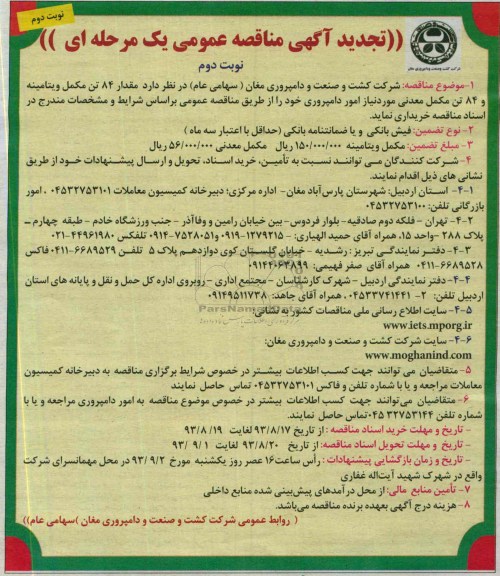 نوبت دوم
شرکت کشت و صنعت و دامپروری مغان
((تجدید آگهی مناقصه عمومی یک مرحله ای ))
نوبت دوم
۱-موضوع مناقصه: شرکت کشت و صنعت و دامپروری مغان ( سهامی عام) در نظر دارد مقدار ۸۴ تن مکمل ویتامینه
و ۸۴ تن مکمل معدنی موردنیاز امور دامپروری خود را از طریق مناقصه عمومی براساس شرایط و مشخصات مندرج در
اسناد مناقصه خریداری نماید.
۲- نوع تضمین: فیش بانکی و یا ضمانتنامه بانکی (حداقل با اعتبار سه ماه )
۳- مبلغ تضمین: مکمل ویتامینه ۱۵۰/۰۰۰/۰۰۰ ریال مکمل معدنی ۵۶/۰۰۰/۰۰۰ ریال
۴- شرکت کنندگان می توانند نسبت به تأمین، خرید اسناد، تحویل و ارسال پیشنهادات خود از طریق
نشانی های ذیل اقدام نمایند.
۴-۱- استان اردبیل: شهرستان پارس‌آباد مغان- اداره مرکزی؛ دبیرخانه کمیسیون معاملات ۰۴۵۳۲۷۵۳۱۰۱ ، امور
بازرگانی تلفن: ۰۴۵۳۲۷۵۳۱۰۰
۴-۲- تهران - فلکه دوم صادقیه- بلوار فردوس-بین خیابان رامین و وفاآذر - جنب ورزشگاه خادم - طبقه چهارم –
پلاک ۲۸۸ -واحد ۱۵، همراه آقای حمید الهیاری: ۱۲۷۹۲۱۵-۰۹۱۹ و ۷۵۲۸۰۵۱-۰۹۱۴ تلفکس ۴۴۹۶۱۹۸۰-۰۲۱
۴-۳- دفتر نمایندگی تبریز : رشدیه - خیابان گلستان کوی دوازدهم پلاک ۵ تلفن ۶۶۸۹۵۲۹-۰۴۱۱ فاکس
۶۶۸۹۵۲۸-۰۴۱۱ همراه آقای صفر فهیمی: ۰۹۱۴۴۰۶۳۸۹۹
۴-۴- دفتر نمایندگی اردبیل -شهرک کارشناسان - مجتمع اداری - روبروی اداره کل حمل و نقل و پایانه های استان
اردبیل تلفن: ۲- ۰۴۵۳۳۷۴۱۴۴۱ ، همراه آقای جاهد: ۰۹۱۴۹۵۱۱۷۳۸
۴-۵- سایت اطلاع رسانی ملی مناقصات کشور به نشانی:
www.iets.mporg.ir
۴-۶- سایت شرکت کشت و صنعت و دامپروری مغان:
www.moghanind.com
۵- متقاضیان می توانند جهت کسب اطلاعات بیشتر در خصوص شرایط برگزاری مناقصه به دبیرخانه کمیسیون
معاملات مراجعه و یا با شماره تلفن و فاکس ۰۴۵۳۲۷۵۳۱۰۱ تماس حاصل نمایند
۶- متقاضیان می توانند جهت کسب اطلاعات بیشتر در خصوص موضوع مناقصه به امور دامپروری مراجعه و یا با
شماره تلفن ۳۲۷۵۳۱۴۴-۰۴۵ تماس حاصل نمایند.
- تاریخ و مهلت خرید اسناد مناقصه : از تاریخ ۹۳/۸/۱۷ لغایت ۹۳/۸/ ۱۹
- تاریخ و مهلت تحویل اسناد مناقصه: از تاریخ ۹۳/۸/۲۰ لغایت ۱ /۹ /۹۳
- تاریخ و زمان بازگشایی پیشنهادات : رأس ساعت ۱۶ عصر روز یکشنبه مورخ ۹۳/۹/۲ در محل مهمانسرای شرکت
واقع در شهرک شهید آیت‌اله غفاری
۷- تأمین منابع مالی: از محل درآمدهای پیش‌بینی شده منابع داخلی
۸- هزینه درج آگهی بعهده برنده مناقصه می‌باشد.
( روابط عمومی شرکت کشت و صنعت و دامپروری مغان )سهامی عام))